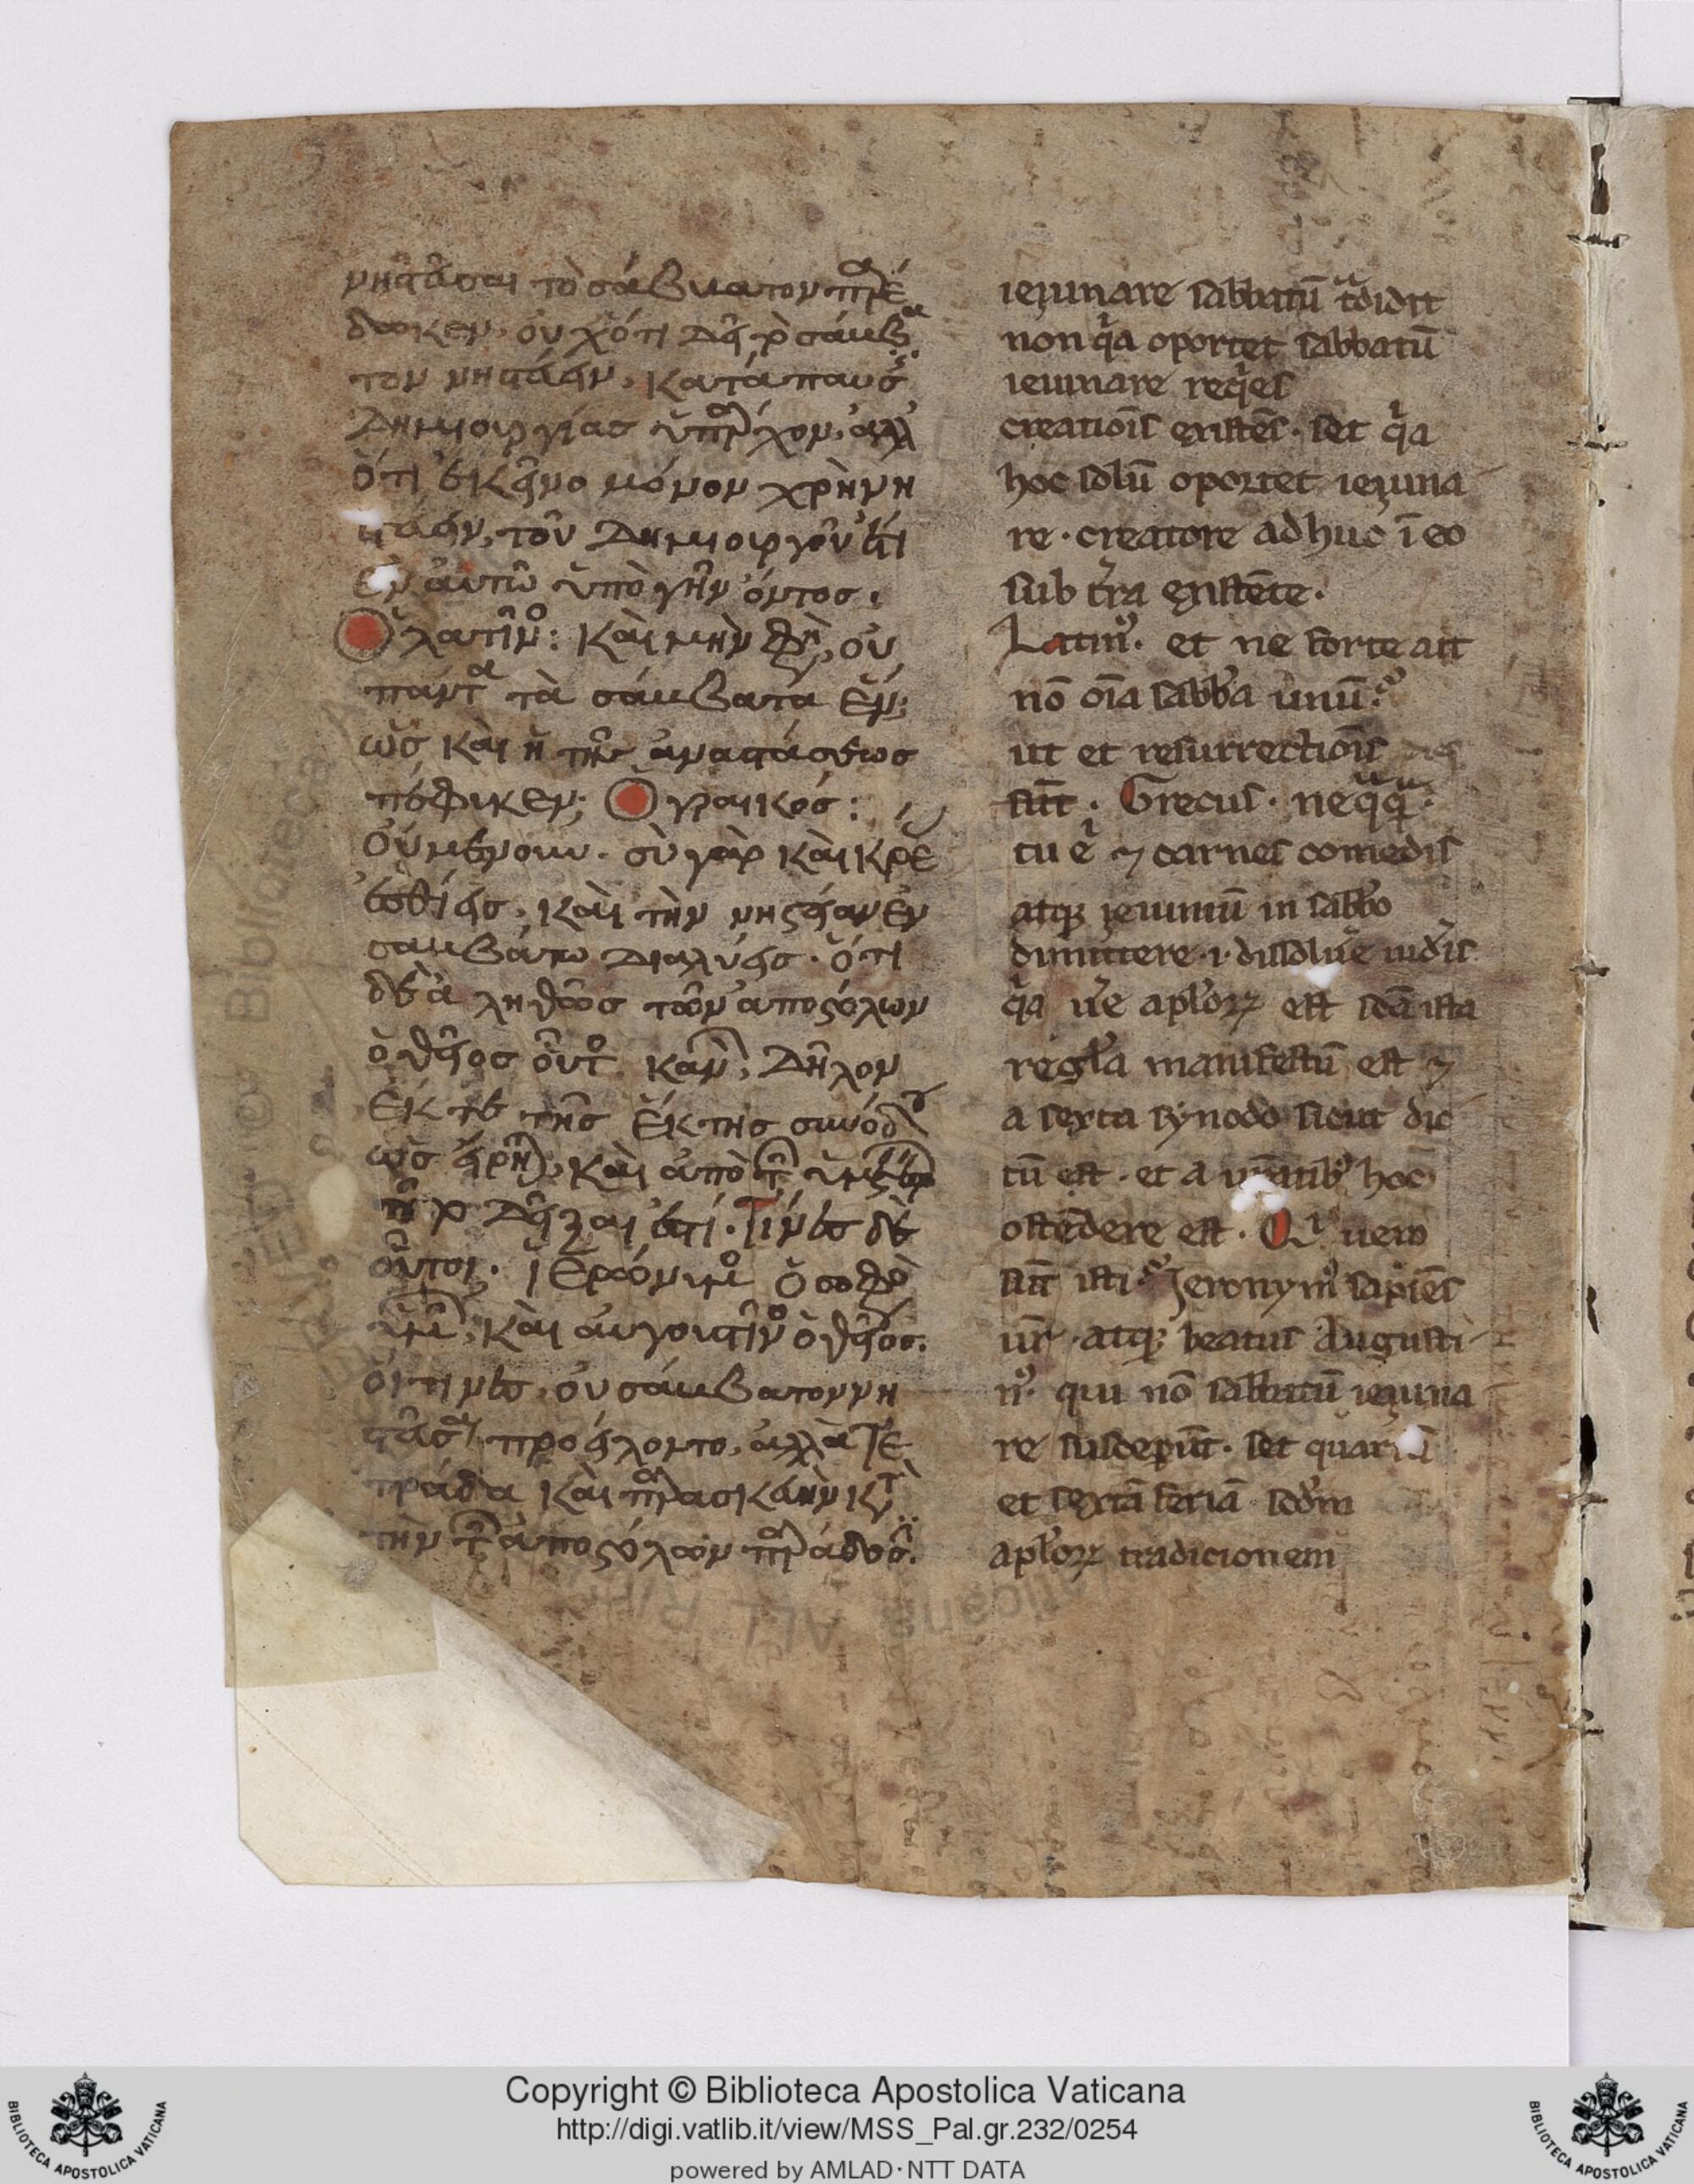 νηστεῦσαι τὸ σάββατον παρέ
δωκεν. οὐχ ὅτι δεῖ τὸ σάμβα
τον νηστεύειν, κατάπαυσις
δημιουργίας ὑπάρχον, ἀλλ'
ὅτι ἐκεῖνο μόνον χρὴ νη
στεύειν, τοῦ δημιουργοῦ ἔτι
ἐν αὐτῶ ὑπὸ γῆν ὄντος.
Ὁ λατῖνος: καὶ μὴν φη, οὐ
πάντα τὰ σάμβατα ἕν;
ὡς καὶ ἡ τῆς ἀναστάσεως
πέφυκεν; Ὁ γραικός:
οὐμενουν. σὺ γὰρ καὶ κρέ
ἐσθίεις, καὶ τὴν νηστείαν ἐν
σαμβάτω διαλύεις. ὅτι
δὲ ἀληθῶς τῶν ἀποστόλων
ὁ θεῖος οὗτος κανών, δῆλον
ἐκ τε τῆς ἕκτης συνόδου
ὡς εἴρη, καὶ ἀπὸ τῶν
δεῖξαι ἔστι. Τίνες δὲ
οὗτοι. ἱερώνυμος ὁ σοφὸ
ὑμῶν, καὶ αὐγουστῖνος ὁ θεῖος.
οἵτινες, οὐ σάμβατον νη
στεῦσαι προείλοντο, ἀλλὰ τε
τράδα καὶ παρασκευὴν κατὰ
τὴν τῶν ἀποστόλων παράδοσιν.
ieiunare sabbatū t̄didit
non q̄a oportet sabbatū
ieiunare req̄es
creatiōis existēs. set q̄a
hoc solū oportet ieiuna
re. creatore adhuc ī eo
sub t̄ra existēte.
Latinꝰ. et ne forte ait
nō oīa sabb̄a unū?
ut et resurrectiōis dies
sūt. Grecus. neq̄q̄
tu ē ⁊ carnes comedis
atqꝫ ieiuniū in sabb̄o
dimittere .i. dissolu̅e uideris
q̄a ūe ap̄loꝝ est sc̄a ista
regl̄a manifestū est ⁊
a sexta synodo sicut dic
tū est. et a uīratibꝰ hoc
ostēdere est. Qⁱ uero
sūt isti? Jeronymꝰ sapiēs
ūr. atqꝫ beatus Augusti
nꝰ. qui nō sabbatū ieiuna
re susceperūt. set quartā
et sextā feriā scd̄m
ap̄loꝝ tradicionem
Copyright © Biblioteca Apostolica Vaticana
http://digi.vatlib.it/view/MSS_Pal.gr.232/0254
powered by AMLAD·NTT DATA
BIBLIOTECA APOSTOLICA VATICANA
BIBLIOTECA APOSTOLICA VATICANA